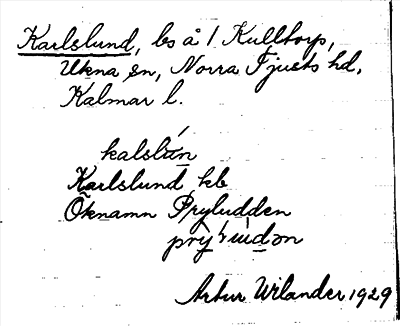 Karlslund, bs å / Kulltorp,
Ukna sn, Norra Tjusts hd,
Kalmar l.
kalslún
Karlslund kb
Öknamn Pryludden
Artur Wilander 1929